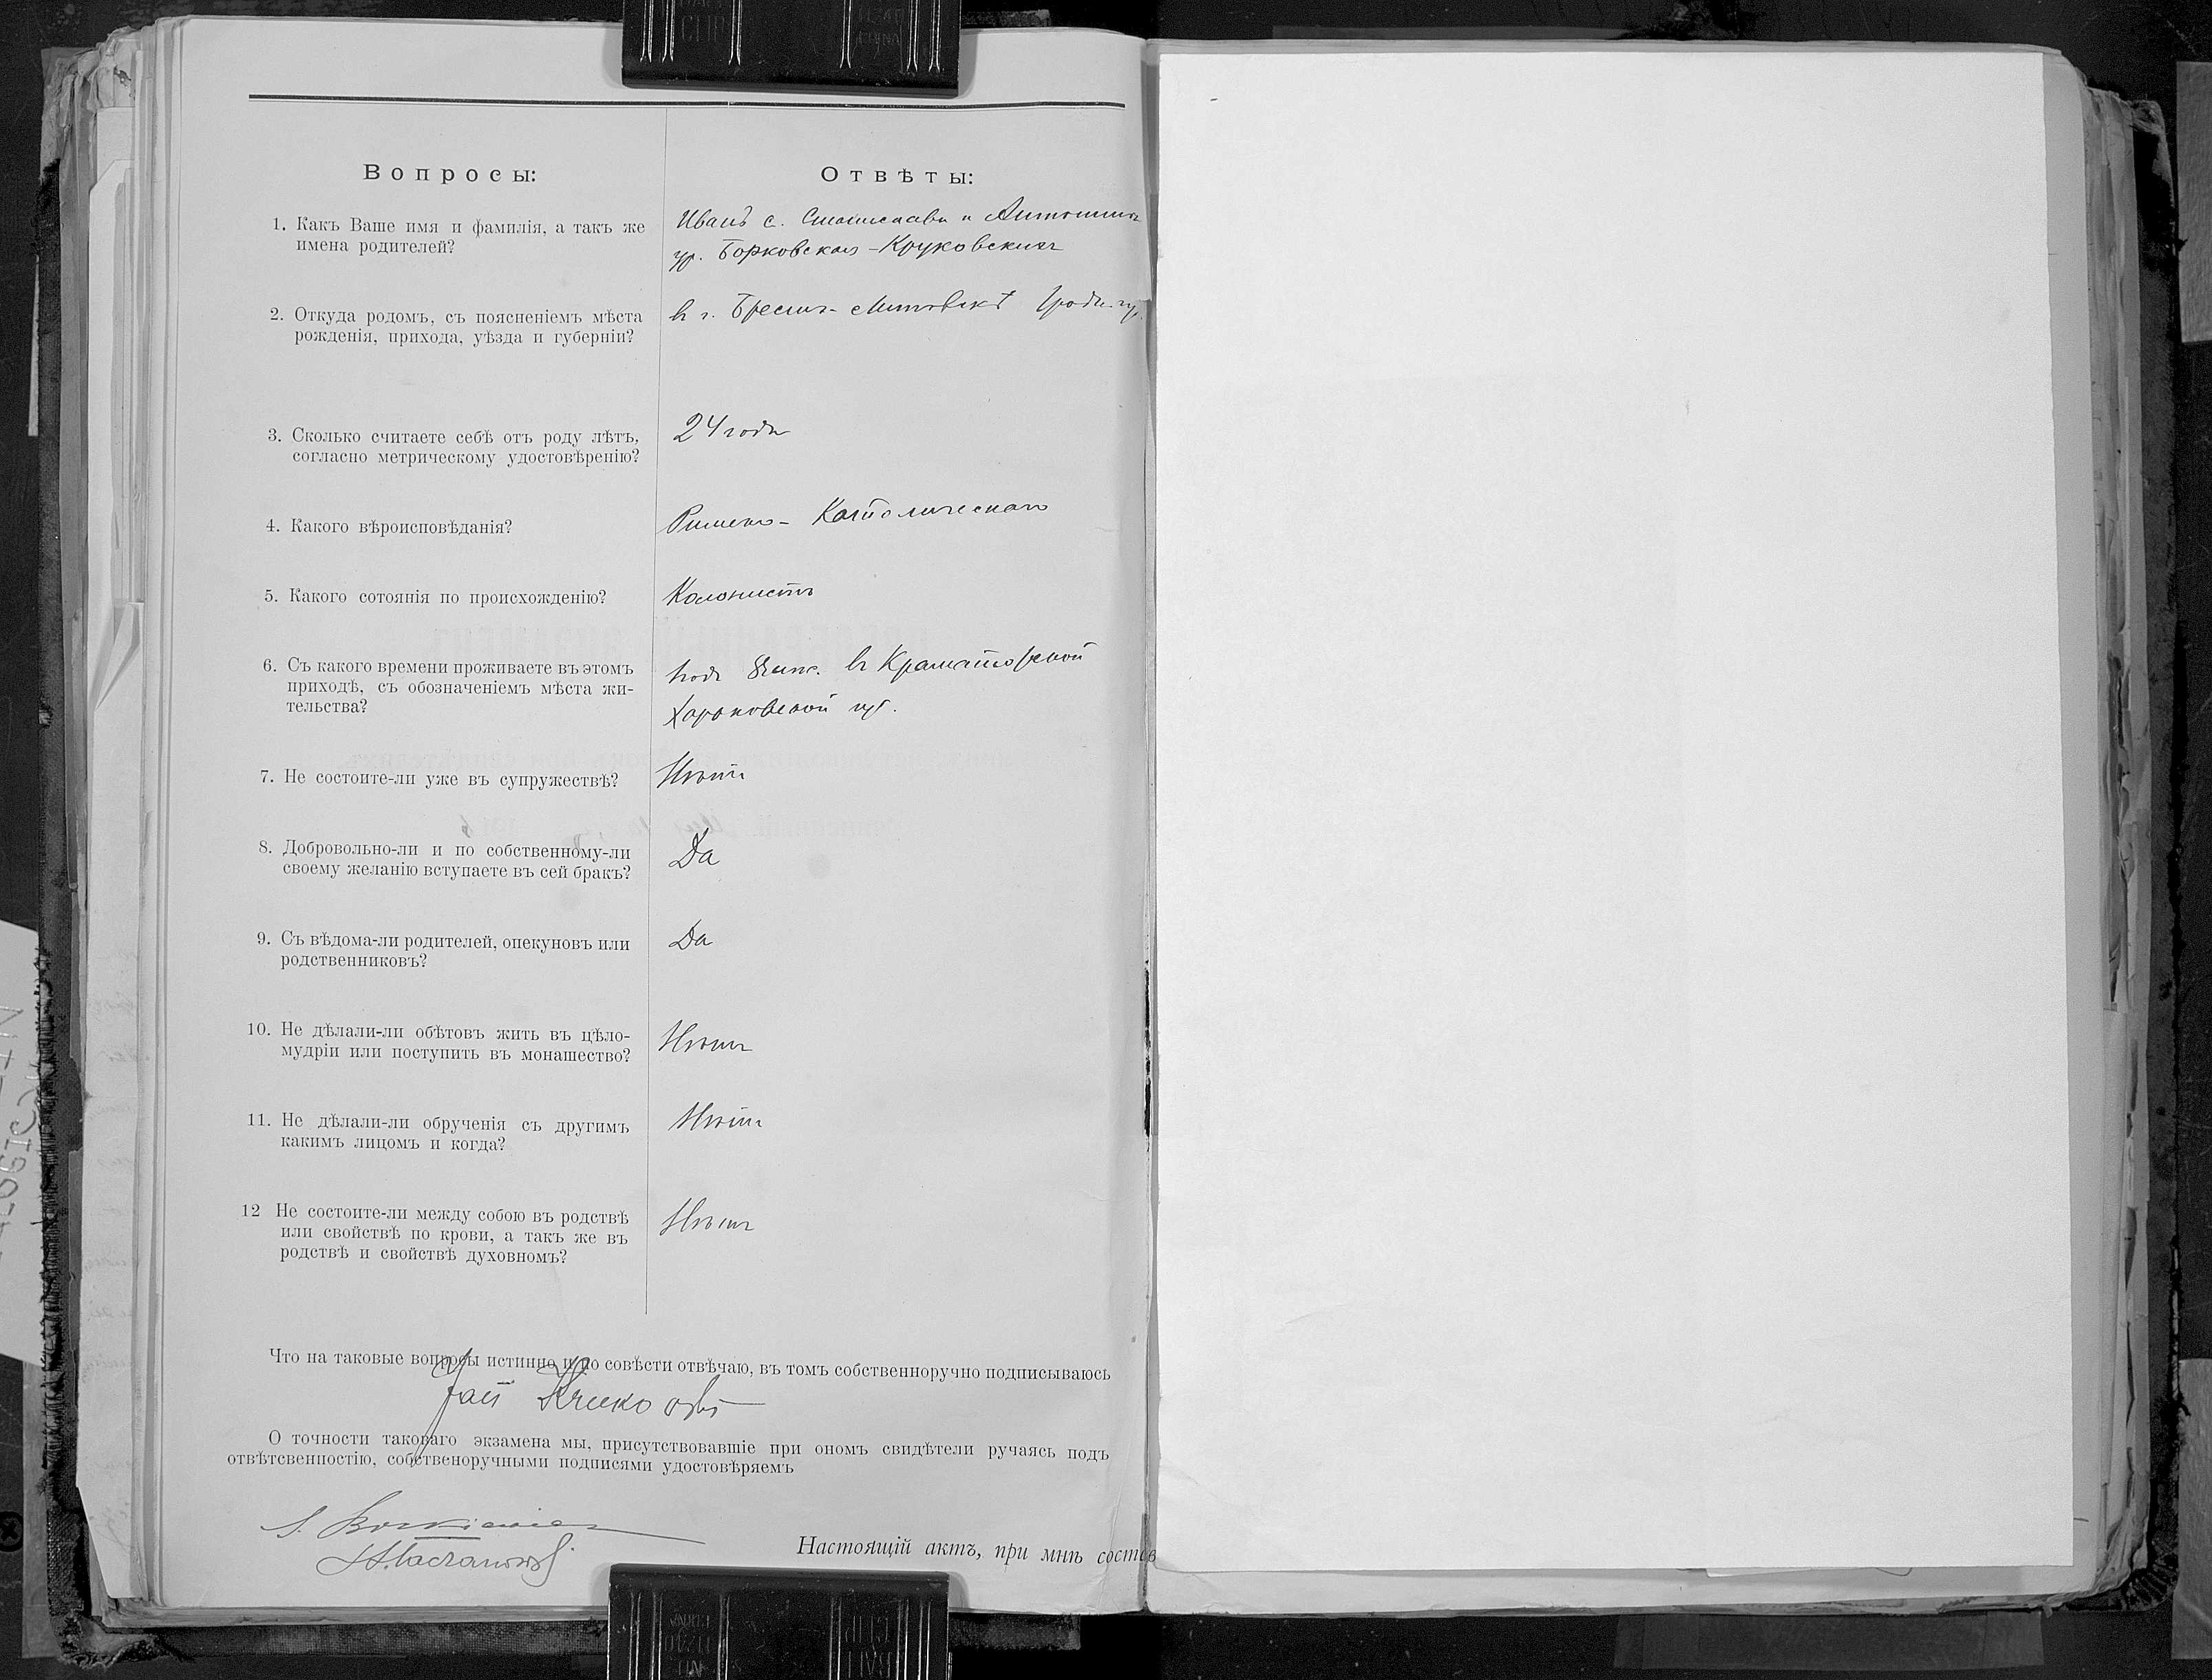 Вопросы:
Отвѣты:
1. Какъ Ваше имя и фамилія, а такъ же
имена родителей?
Иванъ с. Станислава и Антонины
ур. Борковская-Круковскихъ
2. Откуда родомъ, съ поясненіемъ мѣста
рожденія, прихода, уѣзда и губерніи?
въ г. Брестъ-Литовскѣ Гродн. губ.
3. Сколько считаете себѣ отъ роду лѣтъ,
согласно метрическому удостовѣренію?
24 года
4. Какого вѣроисповѣданія?
Римско-Католическаго
5. Какого сотоянія по происхожденію?
Колонистъ
6. Съ какого времени проживаете въ этомъ
приходѣ, съ обозначеніемъ мѣста жи-
тельства?
въ Краматорской
Харьковской губ.
7. Не состоите-ли уже въ супружествѣ?
Нѣтъ
8. Добровольно-ли и по собственному-ли
своему желанію вступаете въ сей бракъ?
Да
9. Съ вѣдома-ли родителей, опекуновъ или
родственниковъ?
Да
10. Не дѣлали-ли обѣтовъ жить въ цѣло-
мудріи или поступить въ монашество?
Нѣтъ
11. Не дѣлали-ли обрученія съ другимъ
какимъ лицомъ и когда?
Нѣтъ
12 Не состоите-ли между собою въ родствѣ
или свойствѣ по крови, а такъ же въ
родствѣ и свойствѣ духовномъ?
Нѣтъ
Что на таковые вопросы истинно и по совѣсти отвѣчаю, въ томъ собственноручно подписываюсь
Jan Krukowski
О точности таковаго экзамена мы, присутствовавшіе при ономъ свидѣтели ручаясь подъ
отвѣтсвенностію, собственоручными подписями удостовѣряемъ
Настоящій актъ, при мнѣ состав